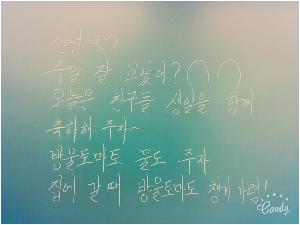 안녕~♡
주말 잘 보냈어?
오늘은 친구들 생일을 함께
축하해 주자~
방울토마토 물도 주자
집에 갈 때 방울토마토 챙겨가렴!
Candy